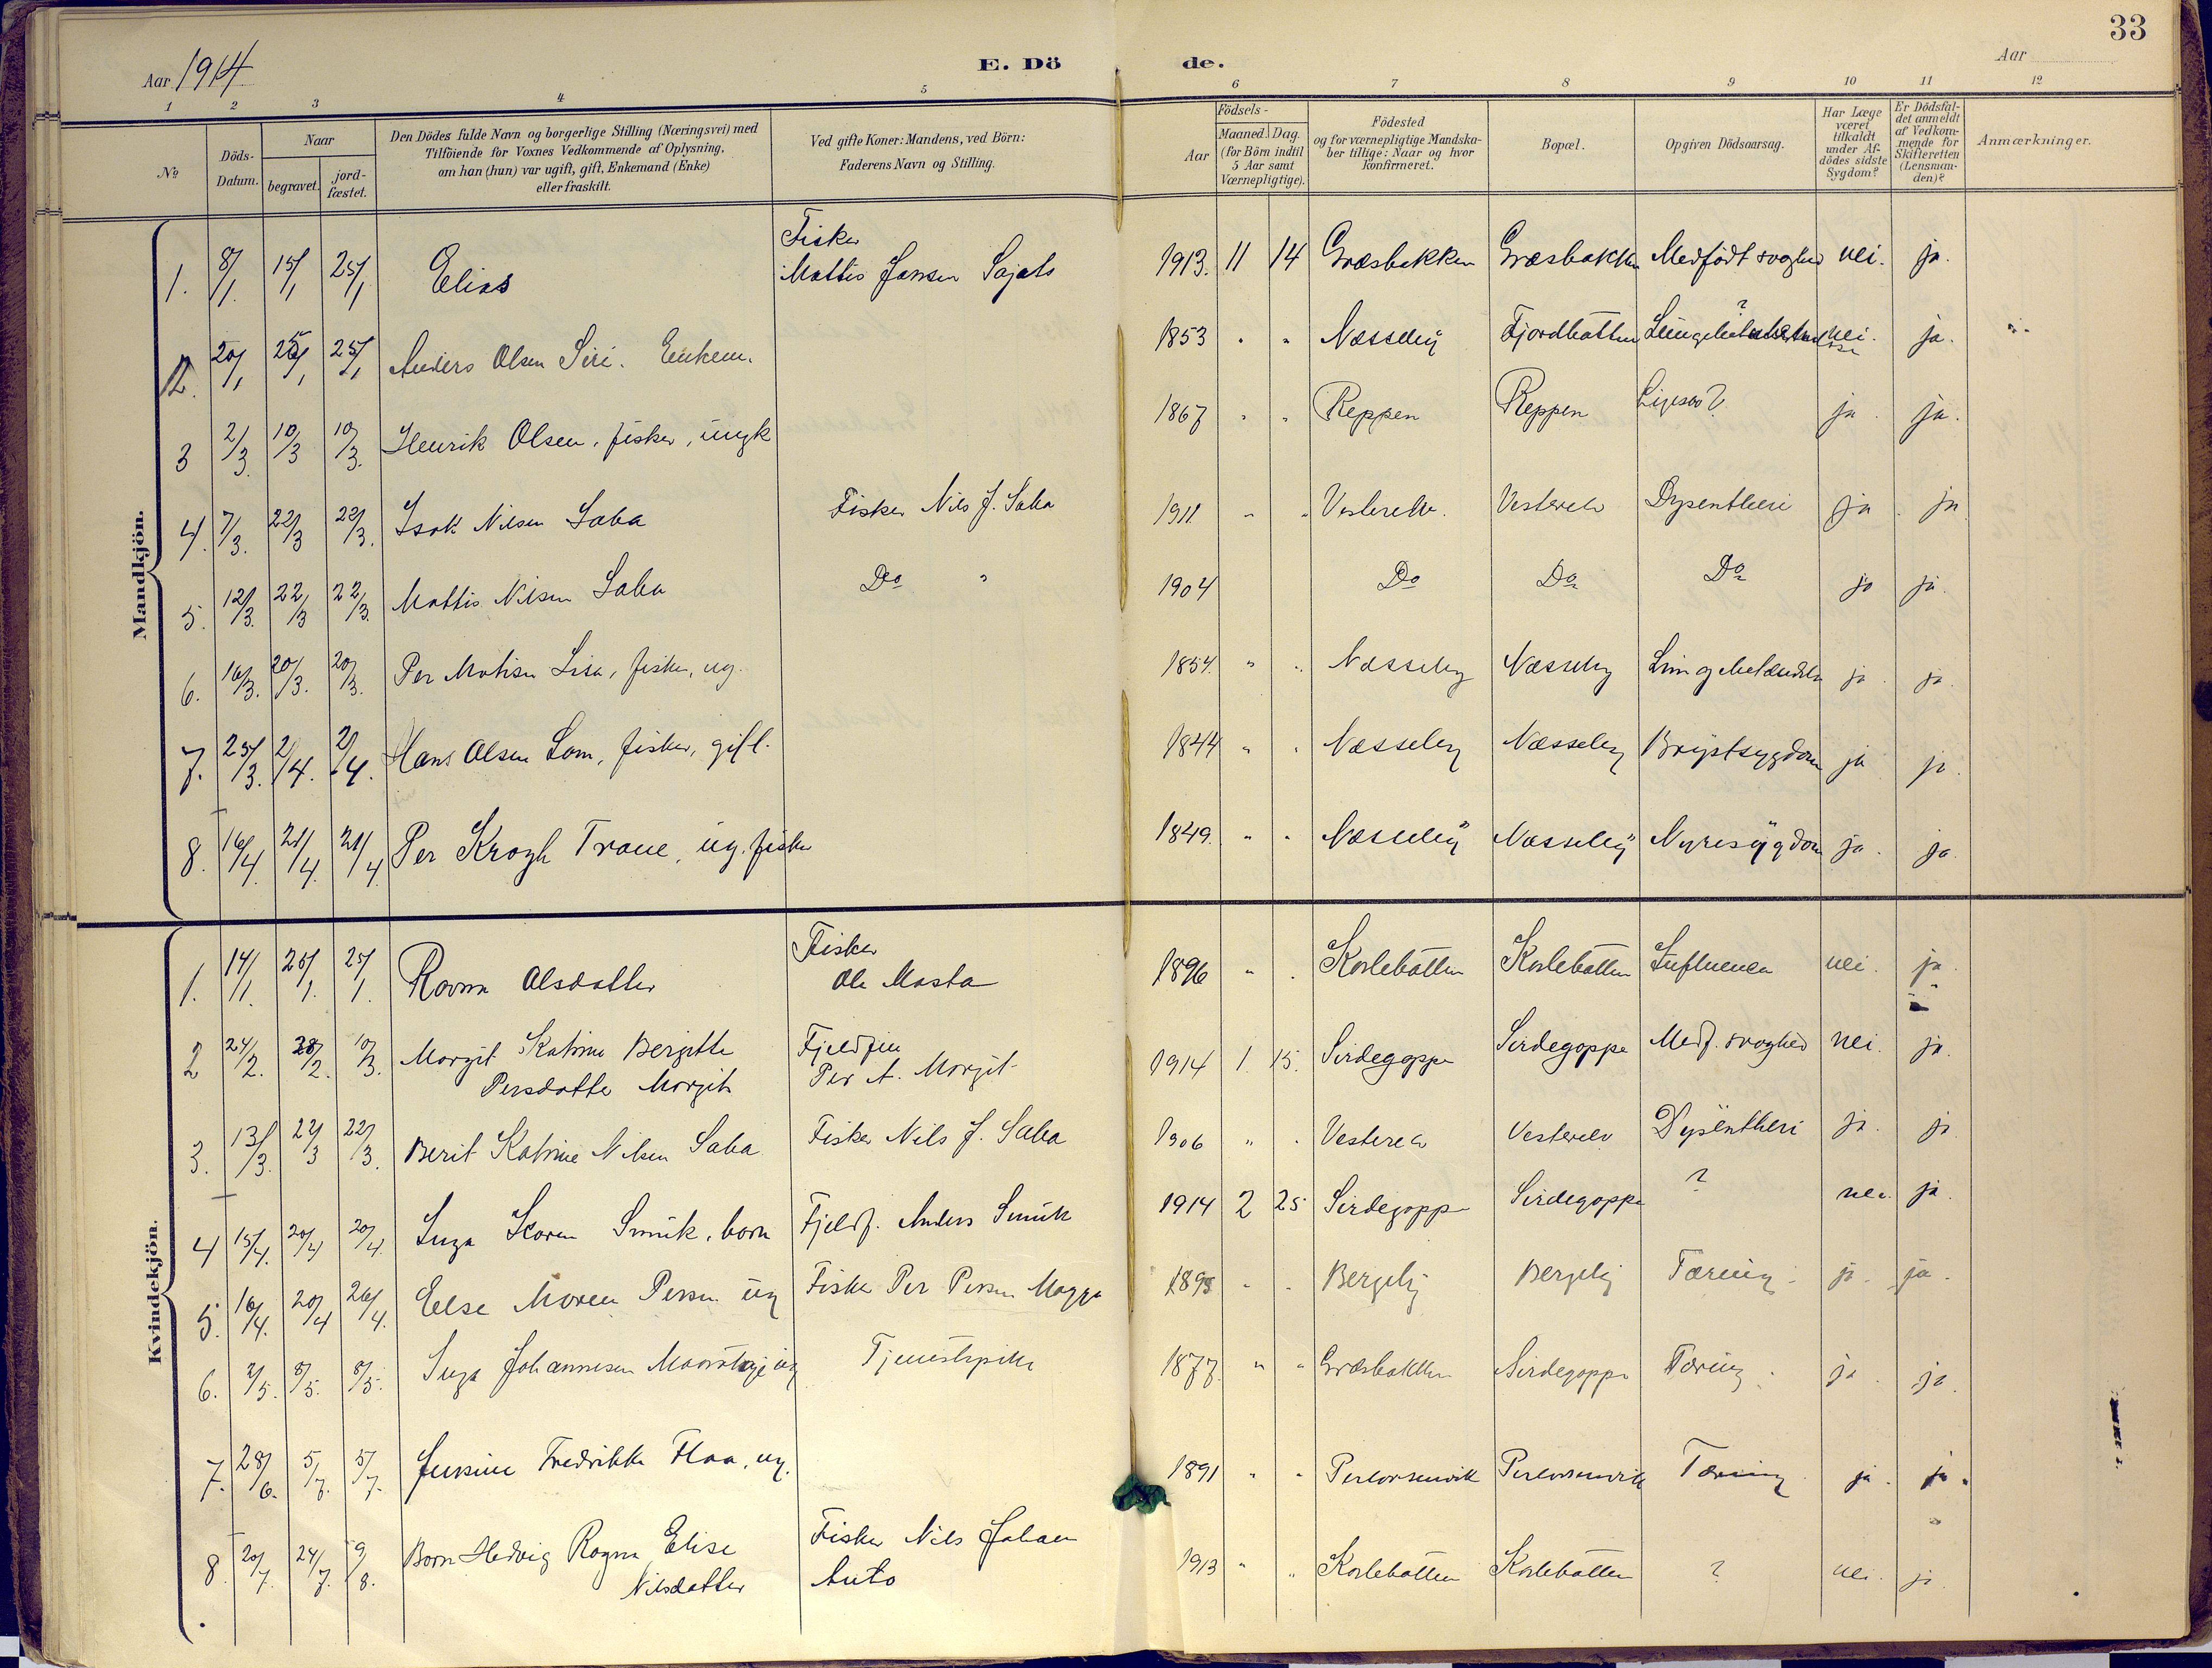 33
Aar 1914
E. Dö de.
Aar
1 2 3 4 5 6 7 8 9 10 11 12
№
Döds-Datum.
Naar
begravet.
jord-fæstet.
Den Dödes fulde Navn og borgerlige Stilling (Næringsvei) med
Tilföiende for Voxnes Vedkommende af Oplysning,
om han (hun) var ugift, gift, Enkemand (Enke)
eller fraskilt.
Ved gifte Koner: Mandens, ved Börn:
Faderens Navn og Stilling.
Födsels-
Aar
Maaned. Dag.
(for Börn indtil
5 Aar samt
Værnepligtige).
Födested
og for værnepligtige Mandska-
ber tillige: Naar og hvor
Konfirmeret.
Bopæl.
Opgiven Dödsaarsag.
Har Læge
været
tilkaldt
under Af-
dödes sidste
Sygdom?
Er Dödsfal-
det anmeldt
af Vedkom-
mende for
Skifteretten
(Lensman-
den)?
Anmærkninger.
Mandkjön.
1. 8/1. 15/1 25/1 Elias Fisker Mattis Jansen Sajets 1913. 11 14 Græsbakken Græsbakken Medfödt svaghed nei. ja.
2. 20/1 25/1 25/1 Anders Olsen Siri. Enkem. 1853 " " Næsseby Fjordbotten ? nei. ja.
3 2/3. 10/3 10/3. Henrik Olsen, fisker, ungk 1867 " " Reppen Reppen ja. ja.
4. 7/3. 22/3 22/3. Isak Nilsen Saba Fisker Nils J. Saba 1911 " " Vesterelv. Vesterelv Dysentheri ja. ja
5. 12/3. 22/3 22/3. Mattis Nilsen Saba Do " 1904 Do Do Do ja ja.
6. 16/3. 20/3. 20/3. Per Matisen Lisa, fisker, ug. 1854. " " Næsseby Næsseby ja. ja.
7. 25/3. 2/4. 2/4. Hans Olsen Lom, fisker, gift. 1844 " " Næsseby Næsseby Brystsygdom ja ja.
8. 16/4. 21/4. 21/4. Per Krogh Trane, ug. fisker 1849. " " Næsseby Næsseby Nyresygdom ja. ja.
Kvindekjön.
1. 14/1. 25/1. 25/1. Ravna Olsdatter Fisker Ole Masta 1896 " " Karlebotten Karlebotten Influenca nei. ja.
2 24/2. 28/2. 10/3. Margit Katrine Bergitte Persdatter Margit Fjeldfin Per A. Margit 1914 1. 15. Sirdegoppe Sirdegoppe Medf. svaghed nei. ja.
3. 13/3. 22/3 22/3. Berit Katrine Nilsen Saba Fisker Nils J. Saba 1906 " " Vesterelv Vesterelv Dysentheri ja. ja.
4 15/4. 20/4 20/4. Inga Karen Smuk, barn Fjeldf. Anders Smuk 1914 2 25 Sirdegoppe Sirdegoppe ? nei. ja.
5. 16/4. 20/4 26/4. Else Maren Persen ug Fisker Per Persen Magga 1895 " " Bergeby Bergeby Tæring. ja. ja.
6. 2/5. 8/5. 8/5. Inga Johannesen ug Tjenestepike 1877. " " Græsbakken Sirdegoppe Tæring. ja. ja.
7. 28/6. 5/7. 5/7. Jensine Fredrikke Flaa, ug. 1891 " " Tæring ja. ja.
8 20/7. 24/7. 9/8. Barn Hedvig Ragna Elise Nilsdatter Fisker Nils Johan Auto 1913 " " Karlebotten Karlebotten ? nei. ja.